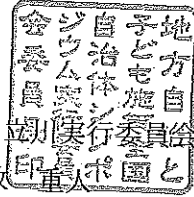 地方自治と
子ども施策全国
自治体シンポ
ジウム実行委員
会委員長印
立川実行委員会
重人